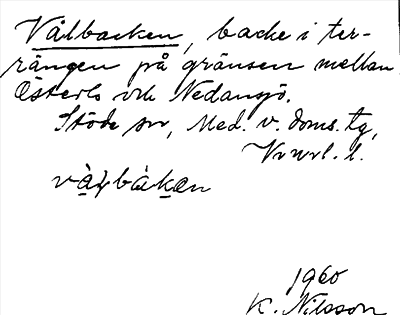 Vålbacken, backe i ter-
rängen på gränsen mellan
Österlo och Nedansjö.
Stöde sn, Med. v. doms. tg,
Vnrl. l.
vàḷbàkən
1960
K. Nilsson